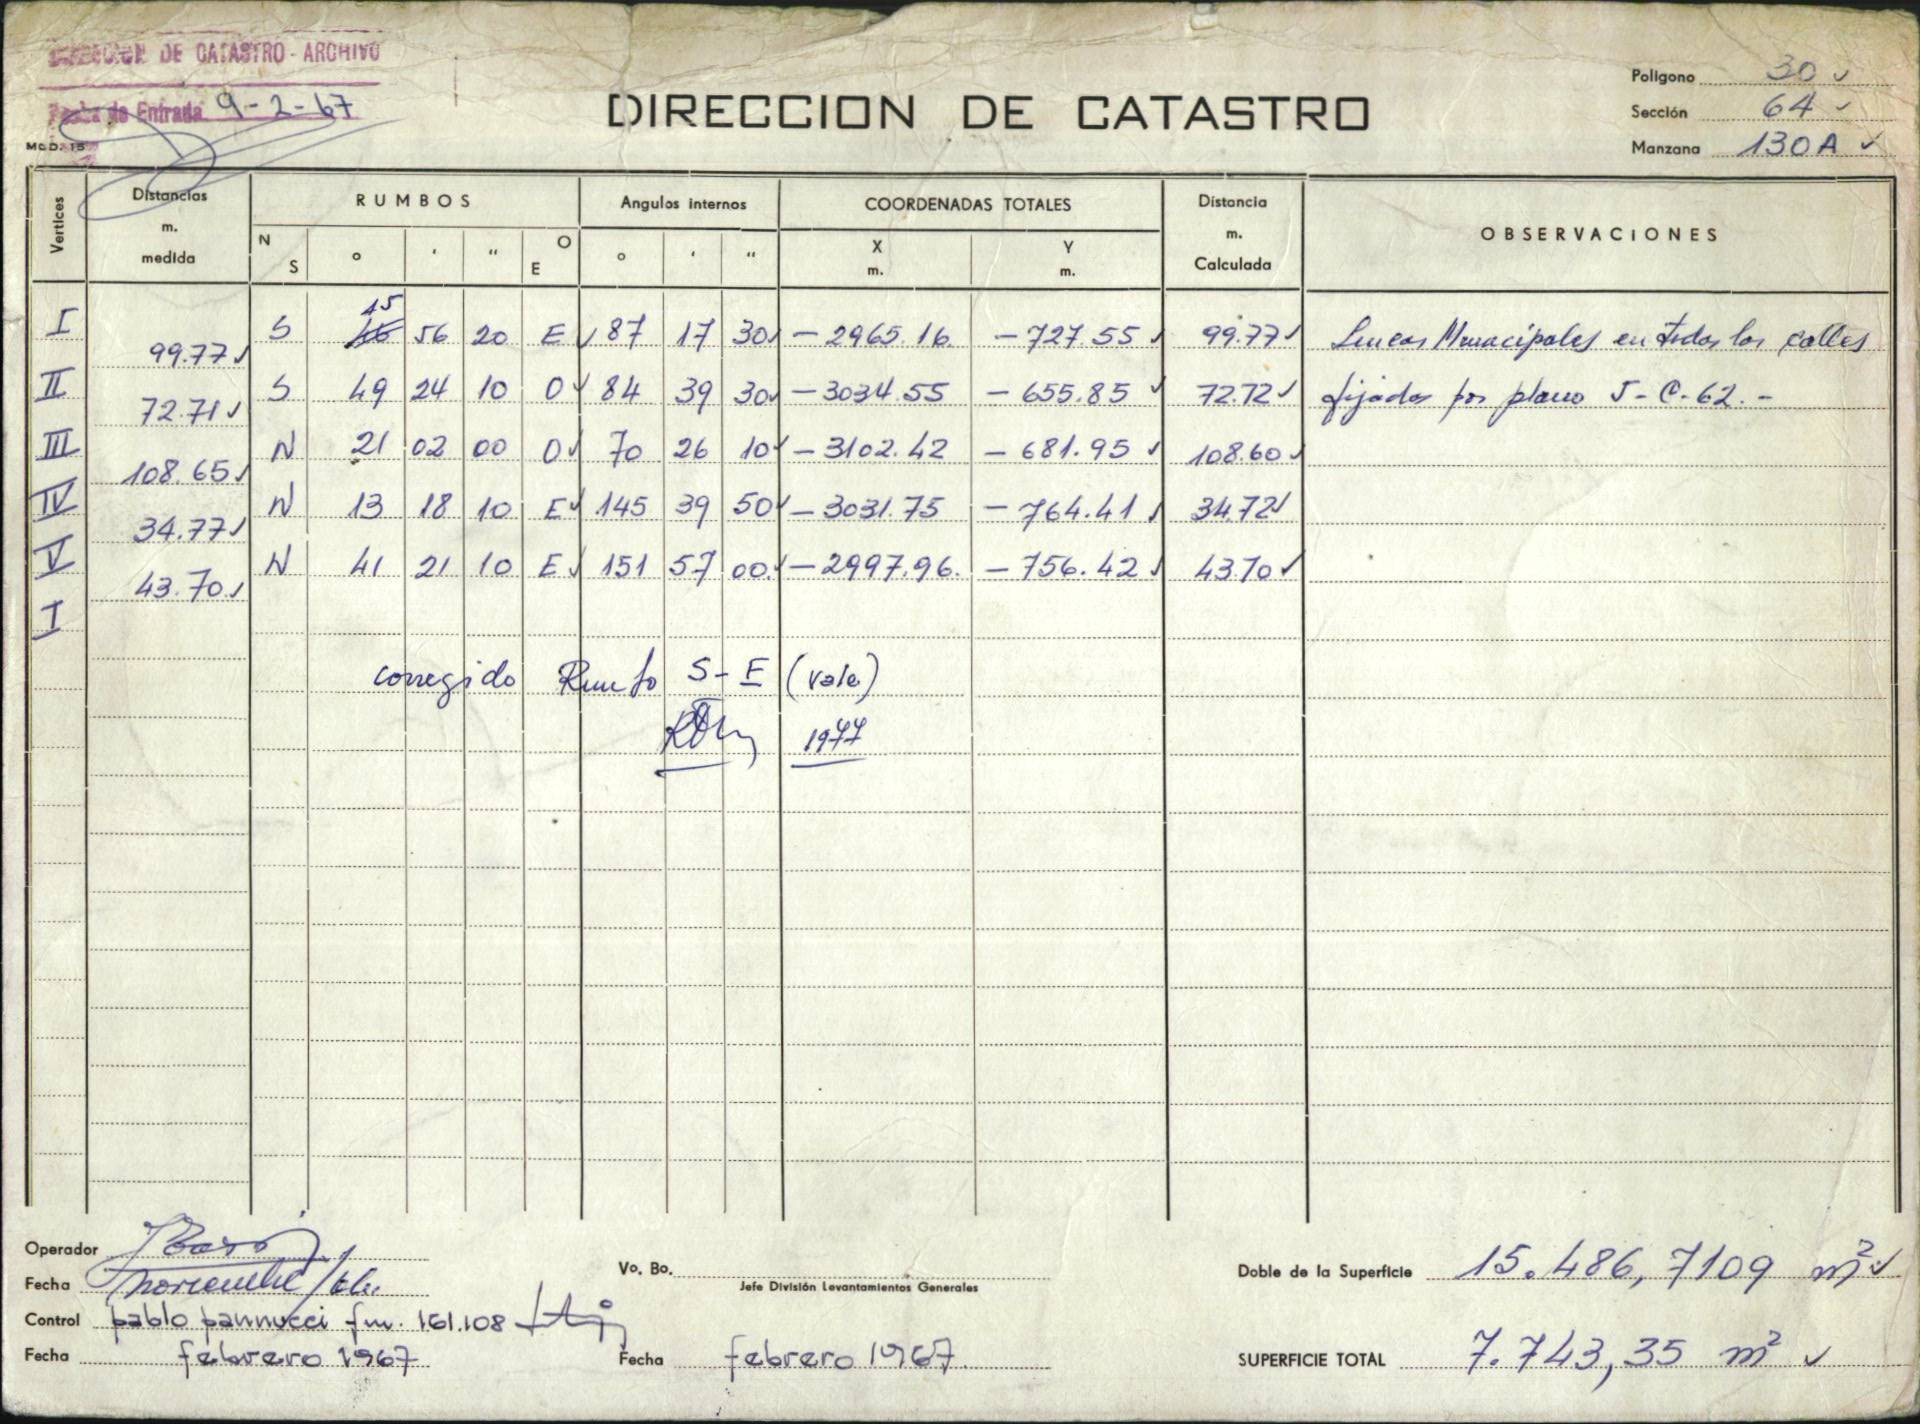 DIRECCION DE CATASTRO - ARCHIVO
Fecha de Entrada 9-2-67
MOD. 15
DIRECCION DE CATASTRO
Polígono 30
Sección 64
Manzana 130A
Vertices Distancias m. medida RUMBOS Angulos internos COORDENADAS TOTALES Distancia m. Calculada OBSERVACIONES
N S ° ' " O E ° ' " X m. Y m.
I 99.77 S 45 46 56 20 E 87 17 30 -2965.16 -727.55 99.77 Lineas Municipales en todas las calles
II 72.71 S 49 24 10 O 84 39 30 -3034.55 -655.85 72.72 fijadas por plano J-C-62.-
III 108.65 N 21 02 00 O 70 26 10 -3102.42 -681.95 108.60
IV 34.77 N 13 18 10 E 145 39 50 -3031.75 -764.41 34.72
V 43.70 N 41 21 10 E 151 57 00 -2997.96 -756.42 43.70
I
corregido Rumbo S-E (vale)
1977
Operador
Fecha noviembre/66.
Control pablo pannucci fm. 161.108
Fecha febrero 1967
Vo. Bo.
Jefe División Levantamientos Generales
Fecha febrero 1967
Doble de la Superficie 15.486,7109 m²
SUPERFICIE TOTAL 7.743,35 m²